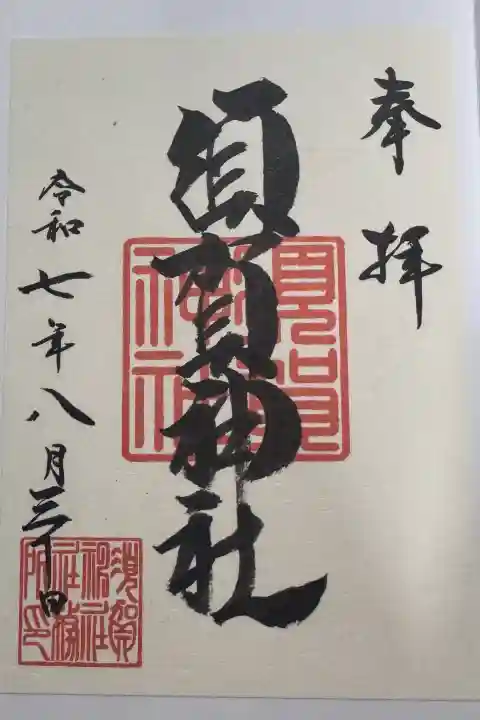 奉拝
須賀神社
令和七年八月三十日
須賀
神社
須賀
神社
社務
所印